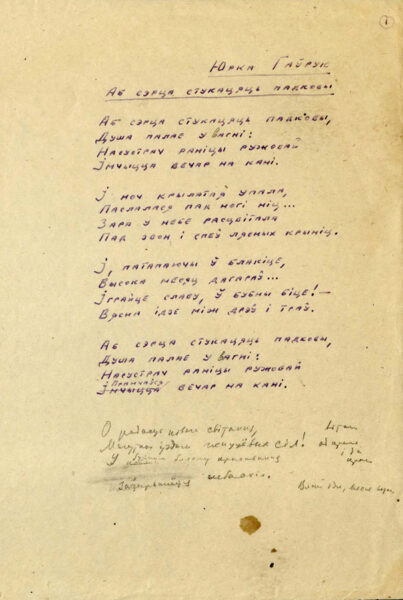 1
Юрка Гаўрук
Аб сэрца стукацяць падковы
Аб сэрца стукацяць падковы,
Душа палае у вагні:
Насустрач раніцы ружовай
Імчыцца вечар на кані.
І ноч крылатая ўпала,
Паслалася пад ногі ніц...
Зара у небе расцвітала
Пад звон і спеў лясных крыніц.
І, патапаючы ў блакіце,
Высока месяц дагараў...
Іграйце славу, ў бубны біце! —
Вясна ідзе між дрэў і траў.
Аб сэрца стукацяць падковы,
Душа палае у вагні:
Насустрач раніцы ружовай
Прамчаўся
Імчыцца вечар на кані.
О радасць новых світанняў,
сіл!
У